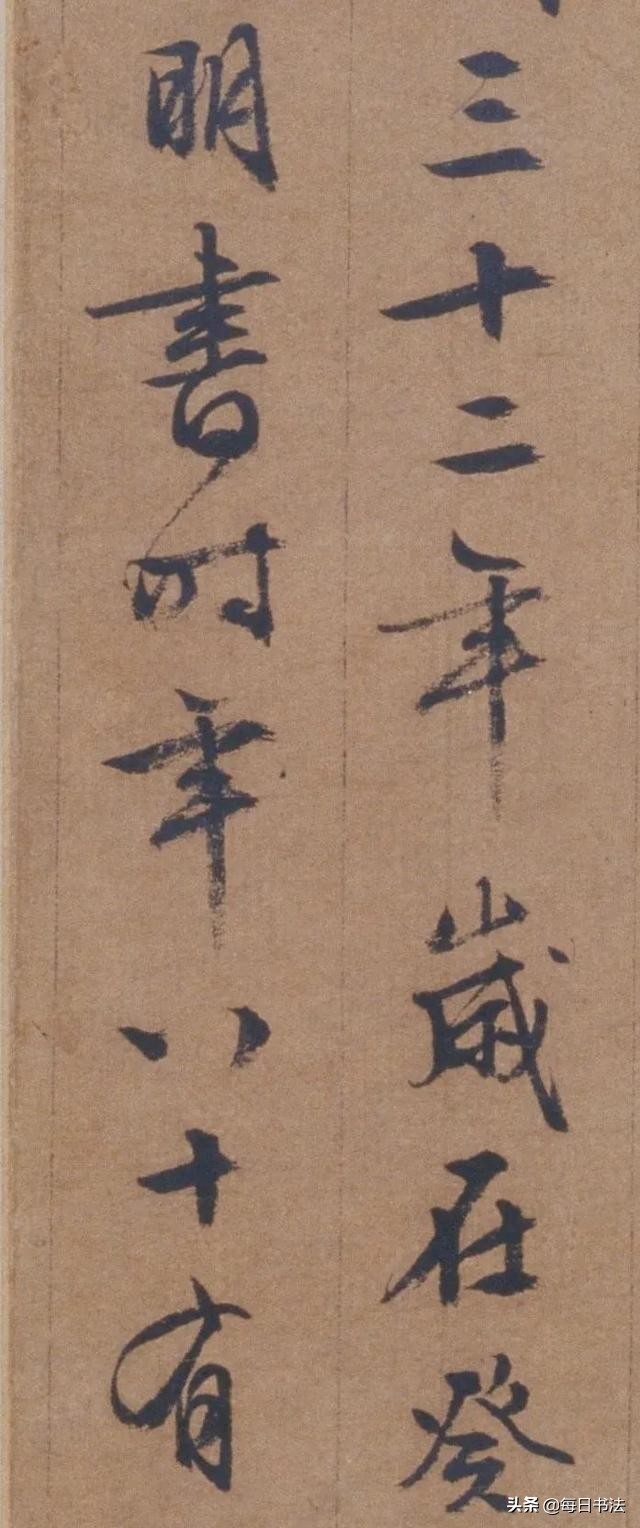 三十二年歲在癸
明書時年八十有
头条 @每日书法